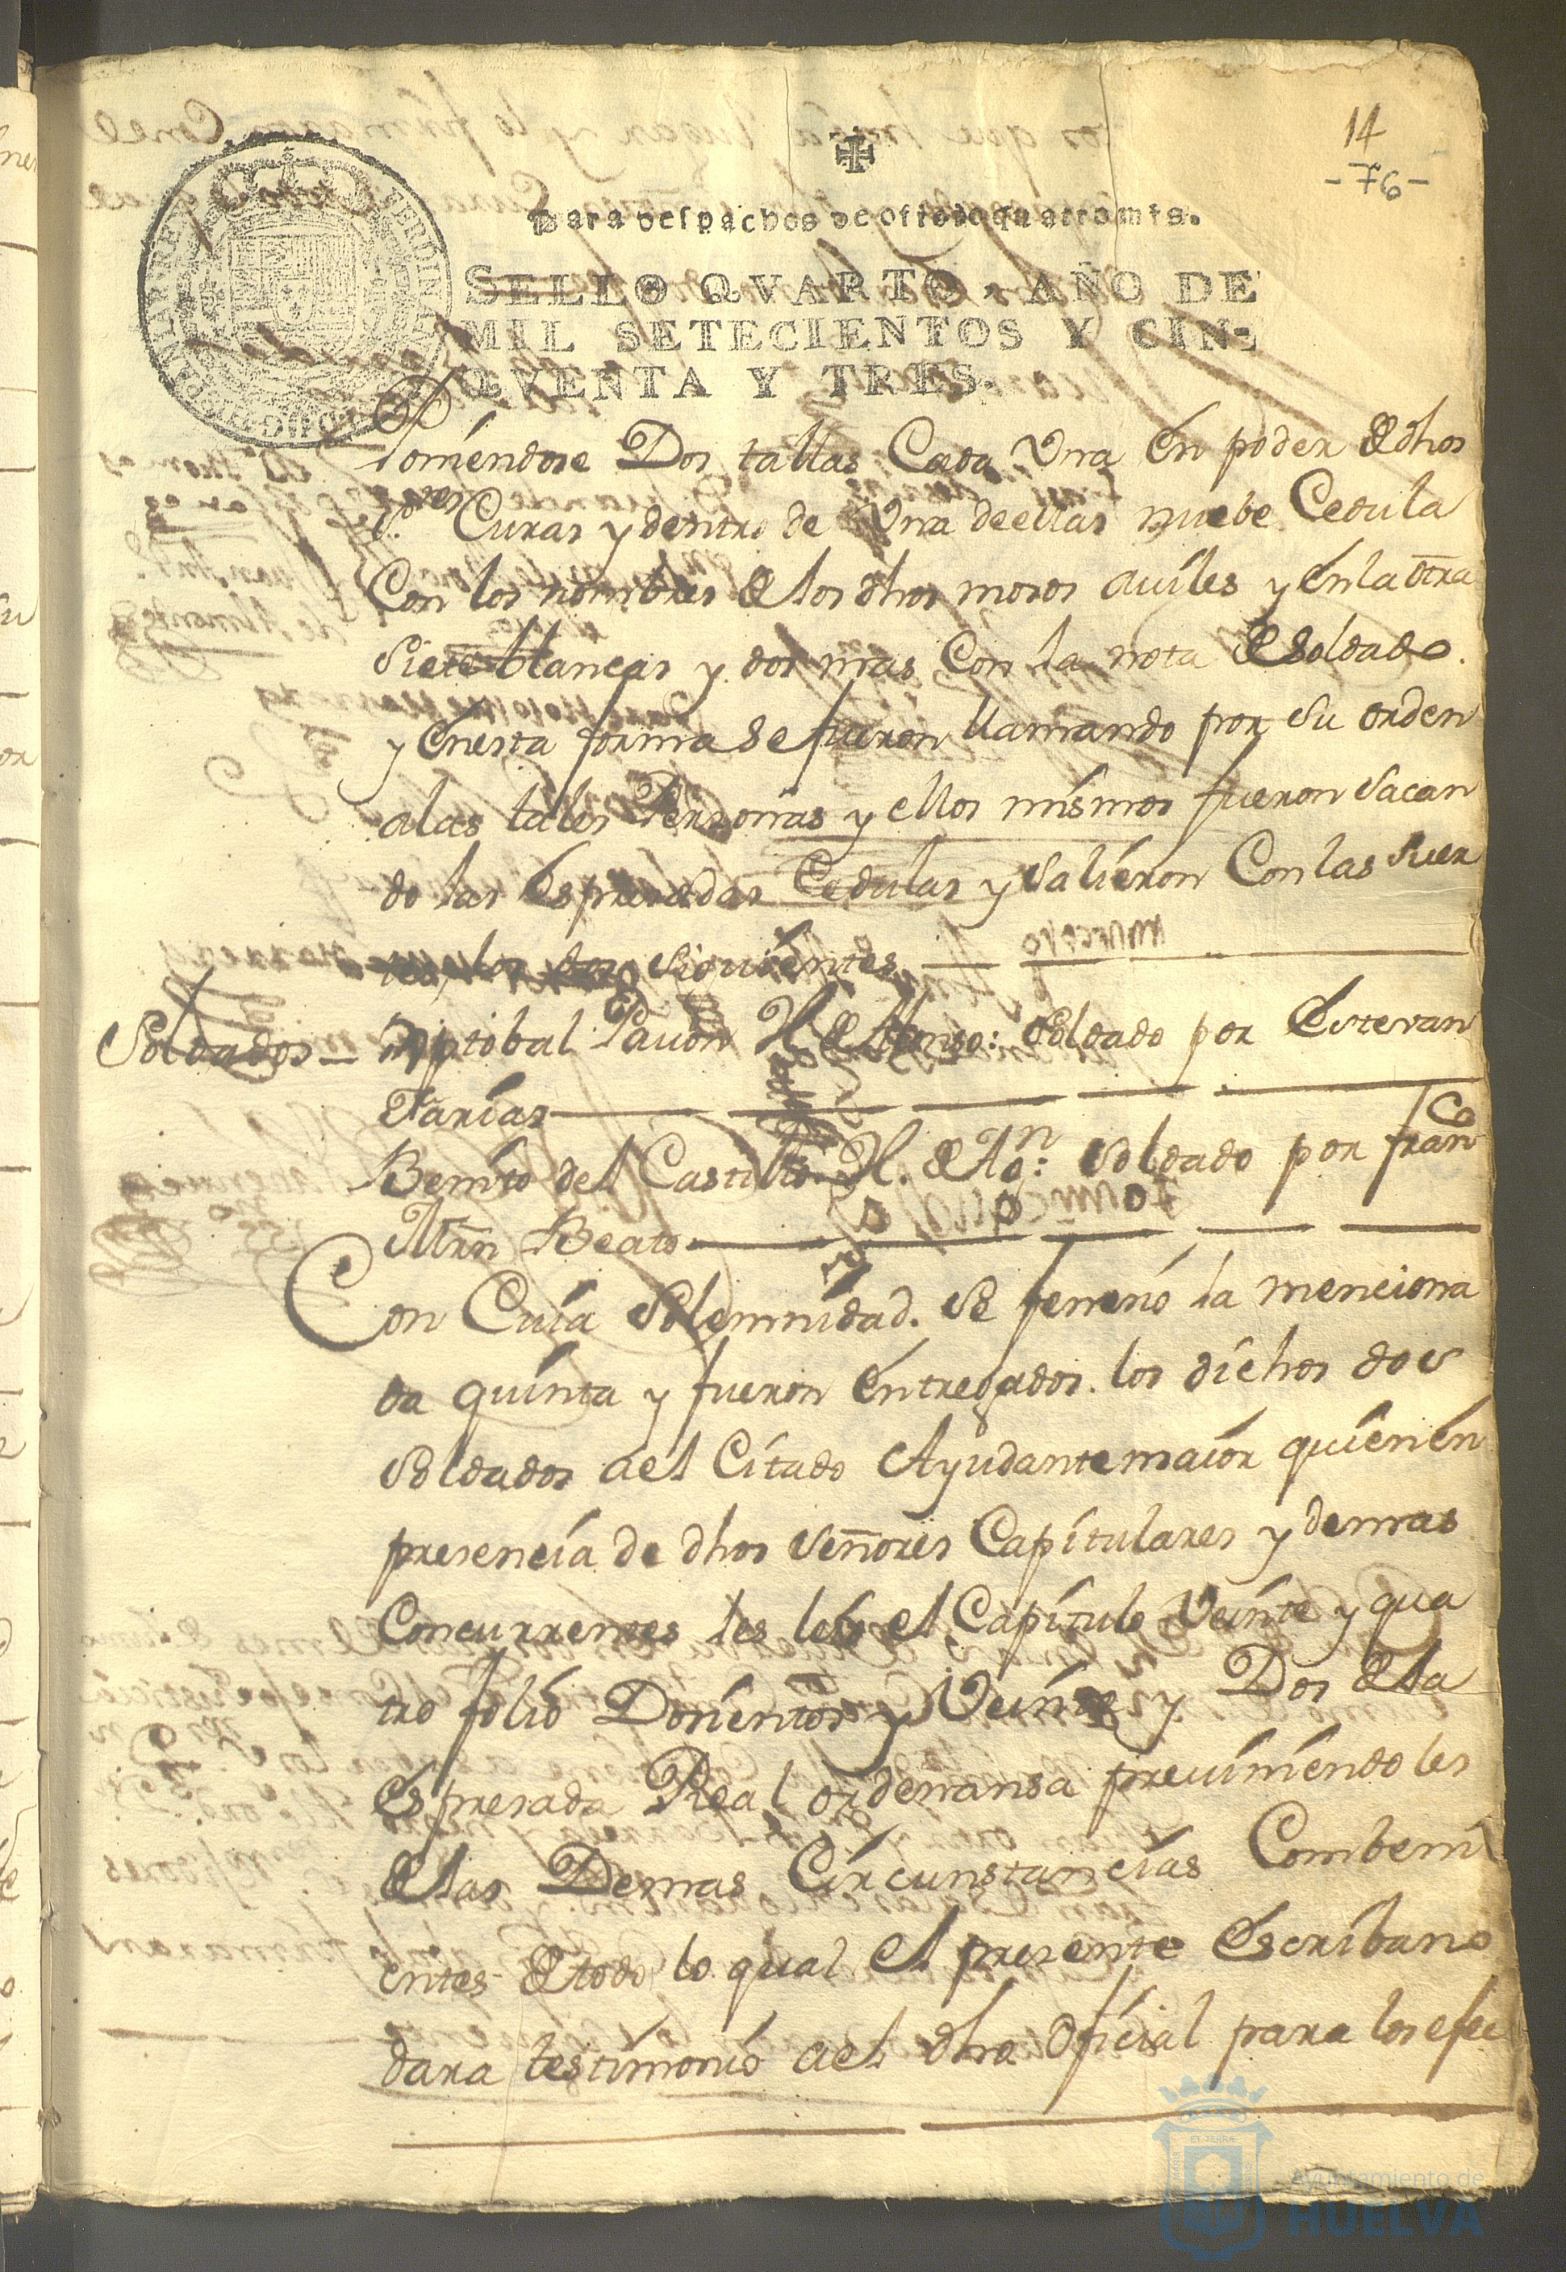 14
-76-
Para despachos de oficio quatro mrs.
SELLO QVARTO, AÑO DE
MIL SETECIENTOS Y CIN-
QVENTA Y TRES.
Poniendose Dos tallas Cada Vna en poder de dhos
S.res Curas y dentro de Vna de ellas nuebe Cedula
Con los nombres de los dhos mosos aviles y en la otra
Siete blancas y dos mas Con la nota de Soldado.
y en esta forma se fueron llamando por su orden
alas tales Personas y ellos mismos fueron sacan
do las espresadas Cedulas y salieron Con las suer
tes, los dos siguientes
Soldados — Xptobal Pavon H. de Alonso: Soldado por Estevan
Farias
Benito del Castillo H. de Al.n: Soldado por fran.co
Mrn Beato
Con Cuia Solemnidad. se feneció la menciona
da quinta y fueron entregados. los dichos dos
Soldados ael Citado Ayudante maior quien en
presencia de dhos Señores Capitulares y demas
Concurrentes les leio el Capitulo Veinte y qua
tro folio Dosientos y Veinte y Dos de la
espresada Real ordenansa previniendoles
de las Demas Circunstancias Combeni
entes de todo lo qual el presente Escribano
dara testimonio ael dho Oficial para los efec
Ayuntamiento de
HUELVA